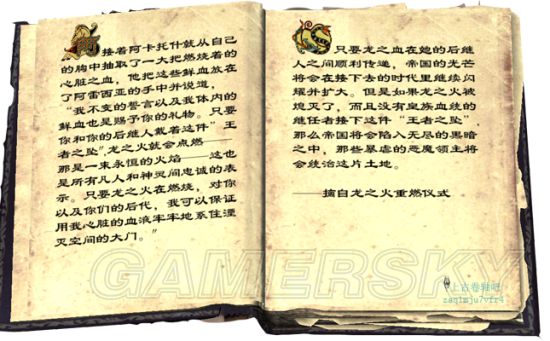 接着阿卡托什就从自己
的胸中抽取了一大把燃烧着的
心脏之血，他把这些鲜血放在
了阿雷西亚的手中并说道，
“我不变的誓言以及我体内的
鲜血也是赐予你的礼物。只要
你和你的后继人戴着这件“王
者之坠”，龙之火就会点燃——
那是一束永恒的火焰——这也
是所有凡人和神灵间忠诚的表
示。只要龙之火在燃烧，对你
以及你们的后代，我可以保证
用我心脏的血液牢牢地系住湮
灭空间的大门。”
只要龙之血在她的后继
人之间顺利传递，帝国的光芒
将会在接下去的时代里继续闪
耀并扩大。但是如果龙之火被
熄灭了，而且没有皇族血统的
继任者接下这件“王者之坠”，
那么帝国将会陷入无尽的黑暗
之中，那些暴虐的恶魔领主将
会统治这片土地。
——摘自龙之火重燃仪式
GAMERSKY
上古卷轴吧
zaq1mju7vfr4